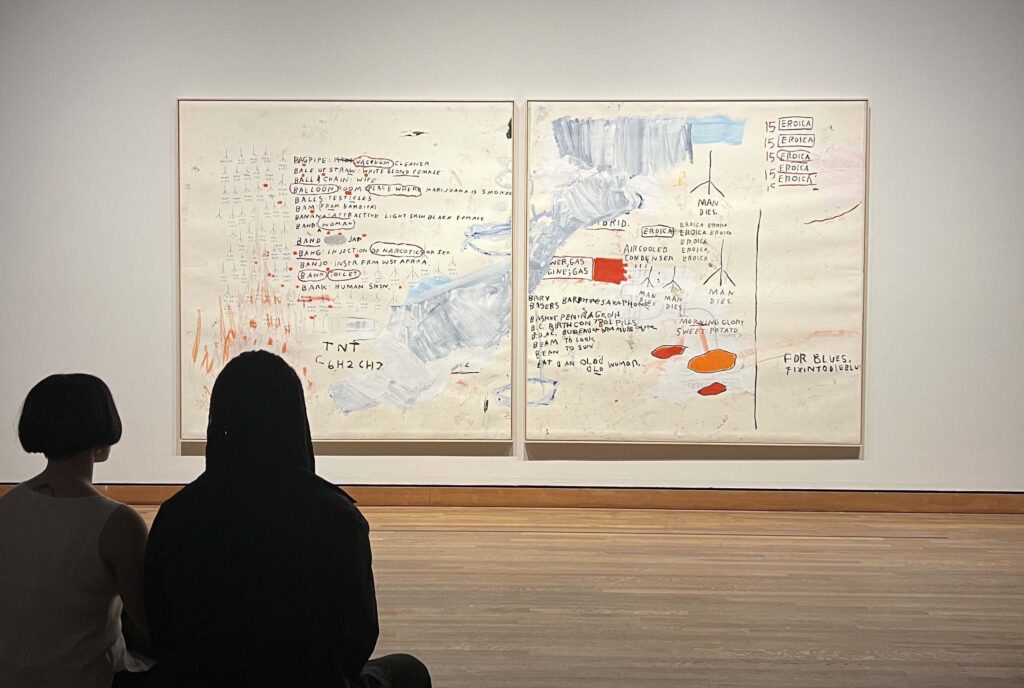 BAGPIPE: VACUUM CLEANER
BALE OF STRAW: WHITE BLOND FEMALE
BALL & CHAIN: WIFE
BALLOON ROOM: PLACE WHERE MARIJUANA IS SMOKED
BALLS: TESTICLES
BAM (FROM BAMBITA)
BANANA: ATTRACTIVE LIGHT SKIN BLACK FEMALE
BAND: WOMAN
BAND
BANG: INJECTION OF NARCOTIC OR SEX
BANJO: INSTR FRM WST AFRIKA
BANK TOILET
BARK: HUMAN SKIN
TNT
C6H2CH3
15 EROICA
15 EROICA
15 EROICA
15 EROICA
15 EROICA
MAN
DIES.
BRID.
EROICA EROICA EROICA
EROICA EROICA
EROICA
EROICA
EROICA
AIRCOOLED
CONDENSER
WER, GAS
GINE; GAS
MAN
DIES
MAN
DIES
MAN
DIES.
BARY
BASERS BARITONE SAXAPHONE
BASKET PENIN GROIN
B.C. BIRTHCON ROL PILLS
BEAM TO LOOK
BEAN TO SUN
EAT AN OLD
OLD WOMAN.
MORNING GLORY
SWEET POTATO
FOR BLUES.
FIXINTODIEBLU